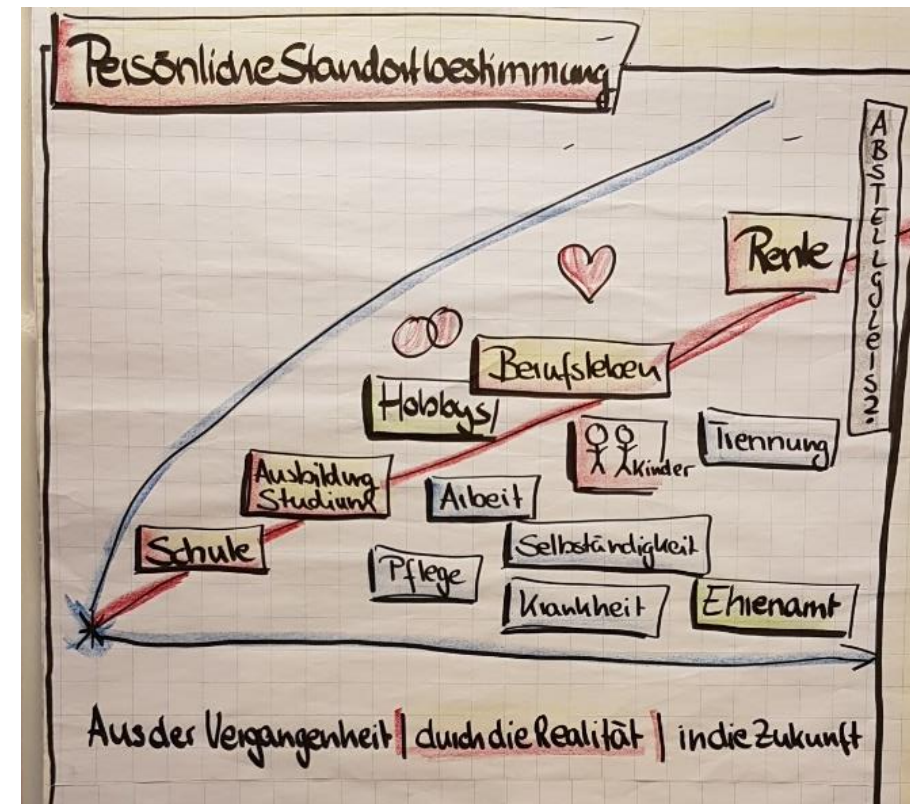 Persönliche Standortbestimmung
ABSTELLgleis?
Rente
Berufsleben
Hobbys
Kinder
Trennung
Ausbildung
Studium
Arbeit
Schule
Selbständigkeit
Pflege
Krankheit
Ehrenamt
Aus der Vergangenheit | durch die Realität | in die Zukunft